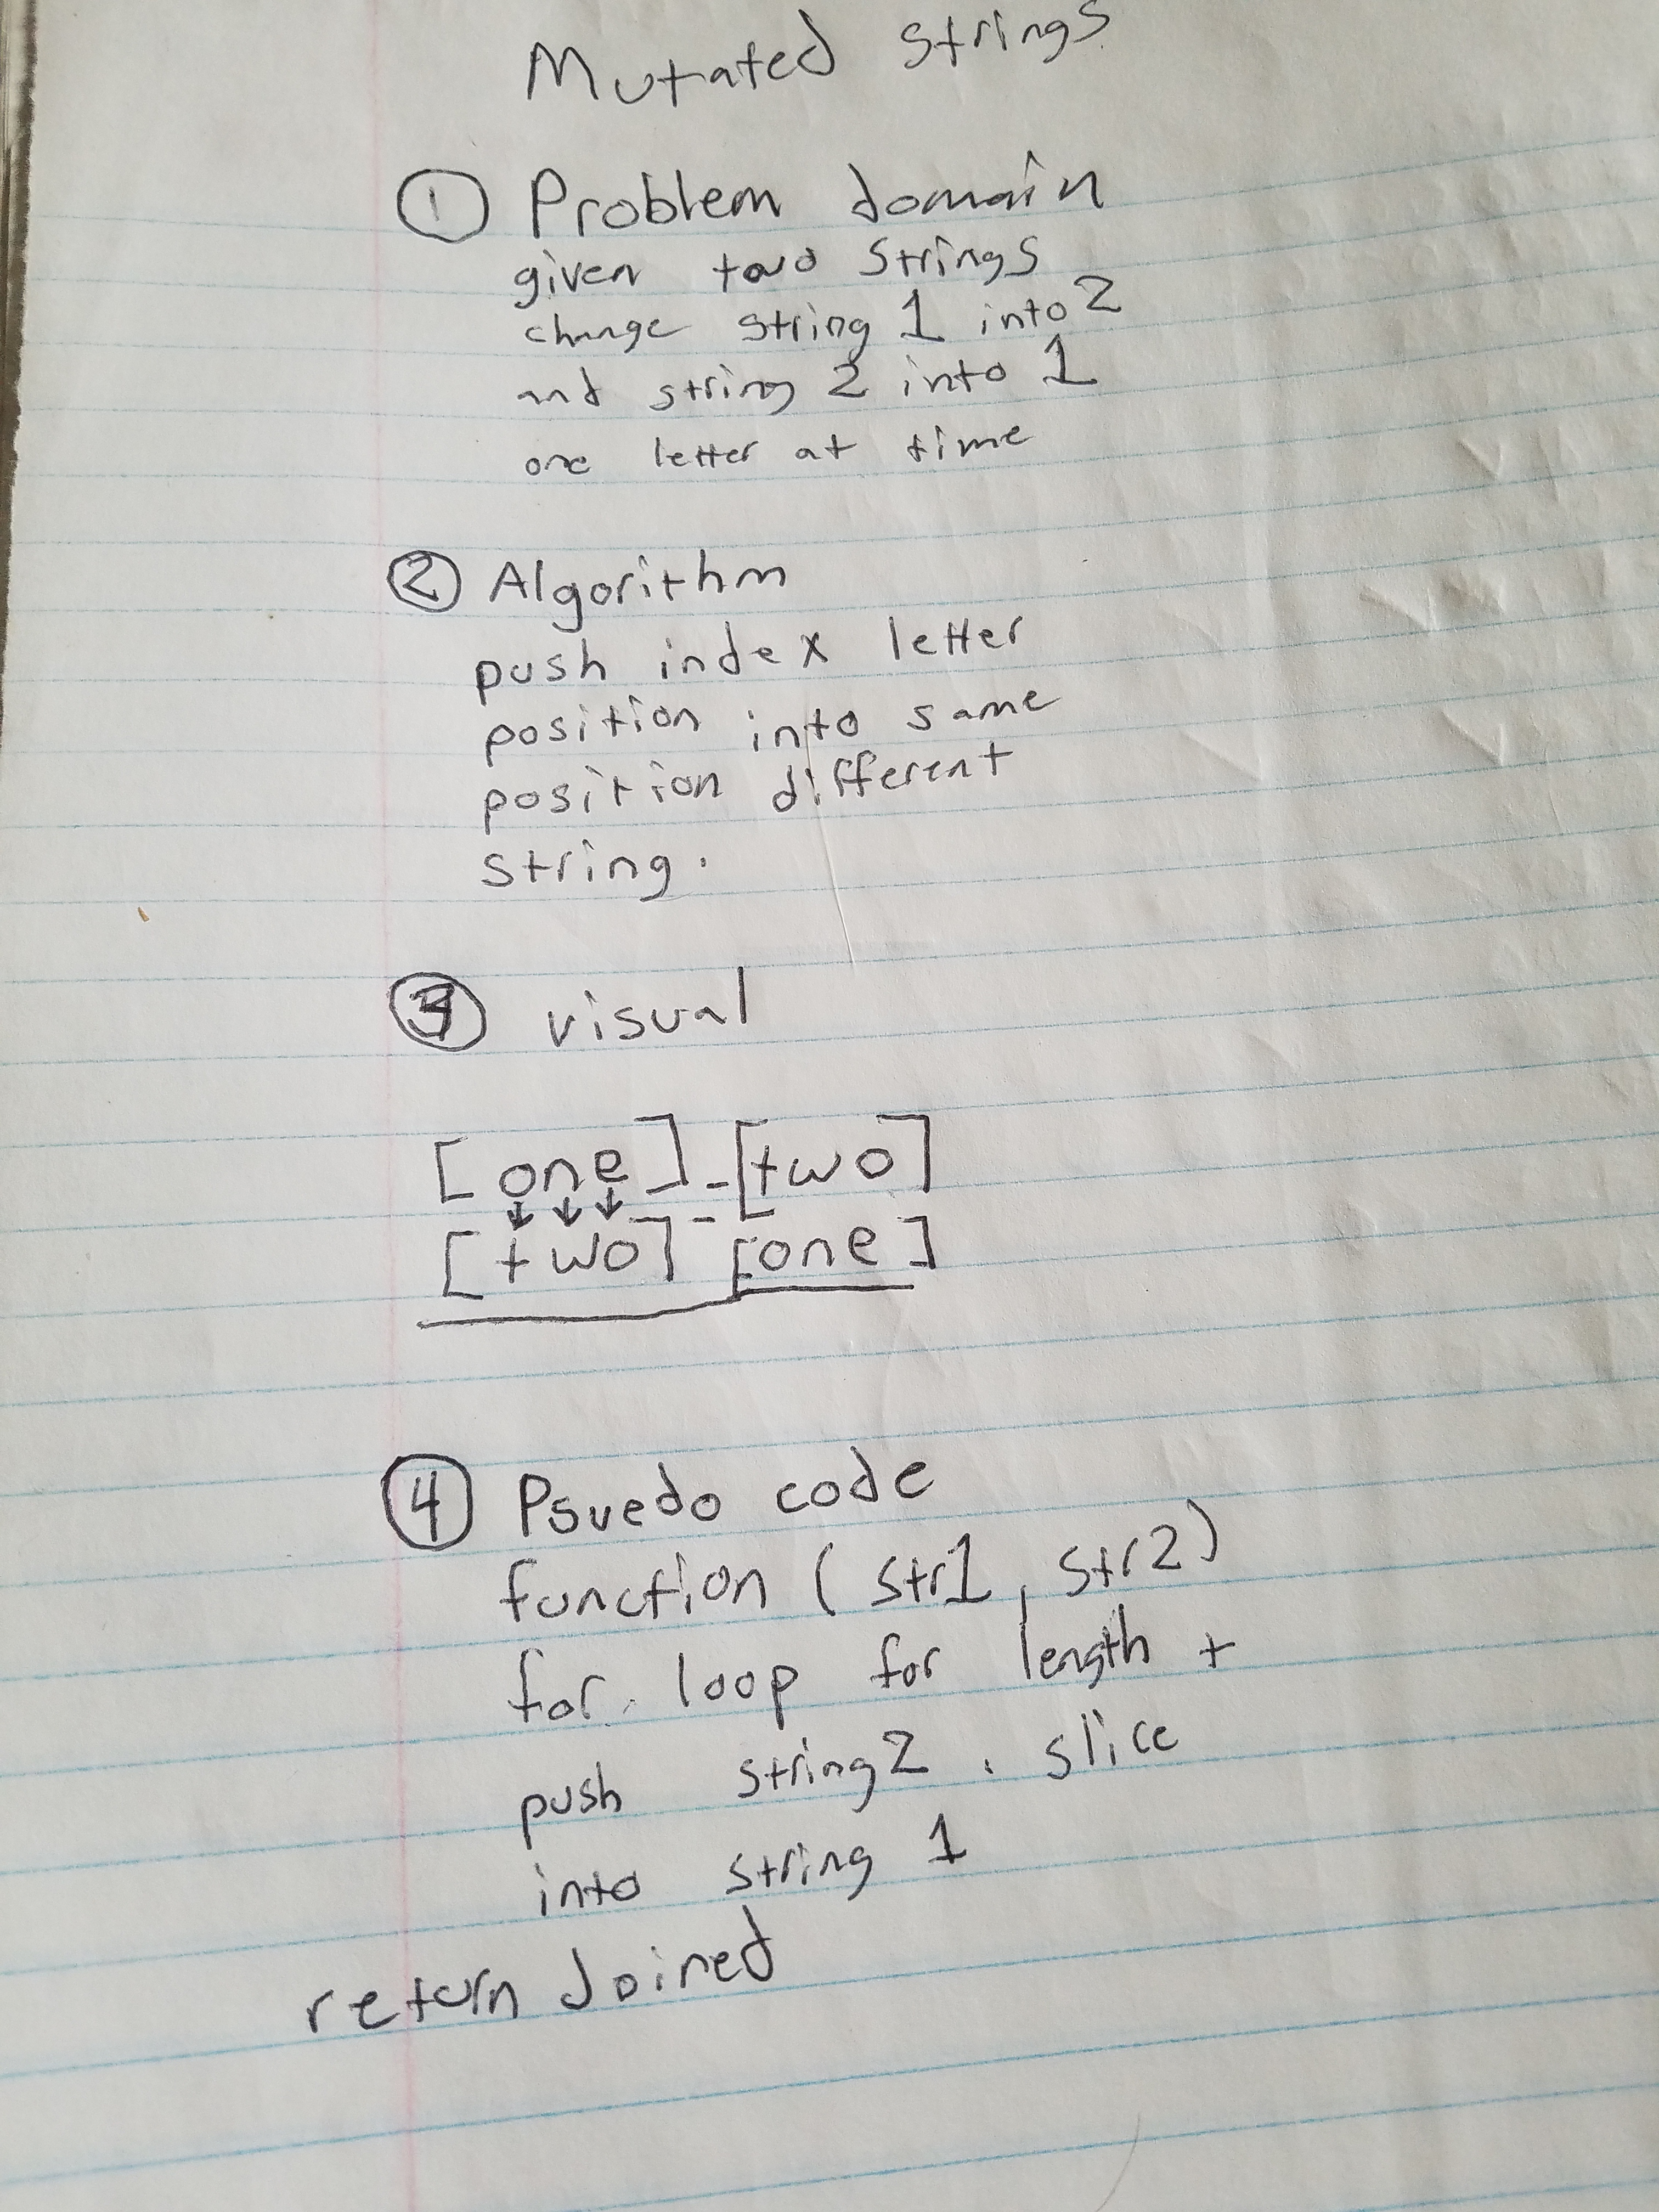 Mutated strings
① Problem domain
given two strings
change string 1 into 2
and string 2 into 1
one letter at time
② Algorithm
push index letter
position into same
position different
string.
③ visual
[one]-[two]
↓↓↓
[two]-[one]
④ Psuedo code
function (str1, str2)
for loop for length +
push string2 . slice
into string 1
return Joined